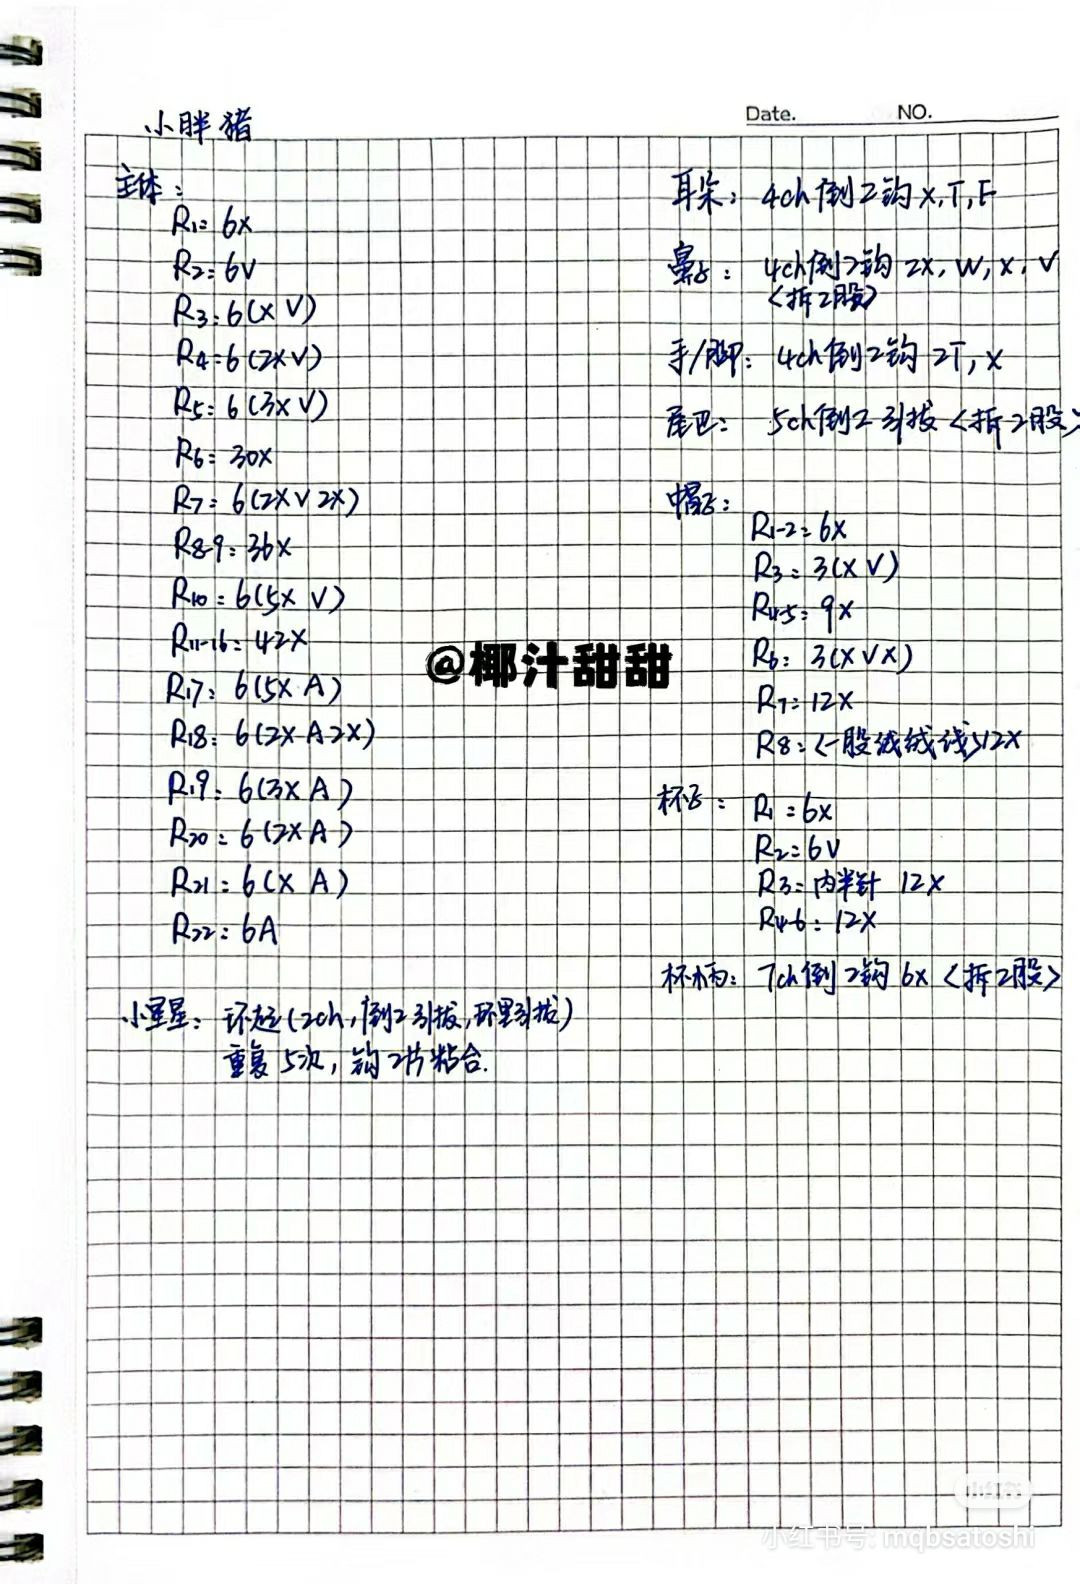 Date.
NO.
小胖猪
主体:
R1= 6X
R2= 6V
R3: 6(X V)
R4= 6(2XV)
R5: 6(3X V)
R6= 30X
R7= 6(2XV 2X)
R8-9: 36X
R10= 6(5X V)
R11-16= 42X
R17: 6(5X A)
R18: 6(2X A 2X)
R19: 6(3X A)
R20= 6(2X A)
R21: 6(X A)
R22: 6A
小星星: 环起(2ch,倒2引拔,环里引拔)
重复5次,钩2片粘合.
耳朵: 4ch倒2钩X,T,F
鼻子: 4ch倒2钩 2X, W, X, V
<拆2股>
手/脚: 4ch倒2钩 2T, X
尾巴: 5ch倒2引拔<拆2股>
帽子:
R1-2= 6X
R3= 3(X V)
R4-5= 9X
R6: 3(X V X)
R7= 12X
R8=<一股绒绒线>12X
杯子: R1=6X
R2=6V
R3=内半针 12X
R4-6: 12X
杯柄: 7ch倒2钩 6X <拆2股>
@椰汁甜甜
小红书
小红书号: mqbsatoshi